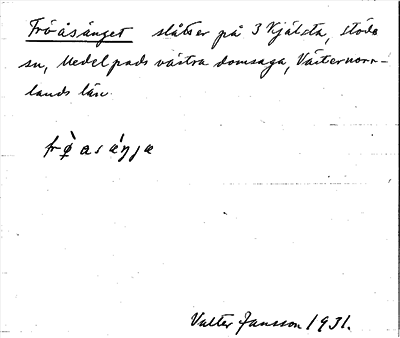 Fröåsänget slåtter på 3 Kjälsta, Stöde
sn, Medelpads västra domsaga, Västernorr-
lands län.
frø̀asáŋja
Valter Jansson 1931.